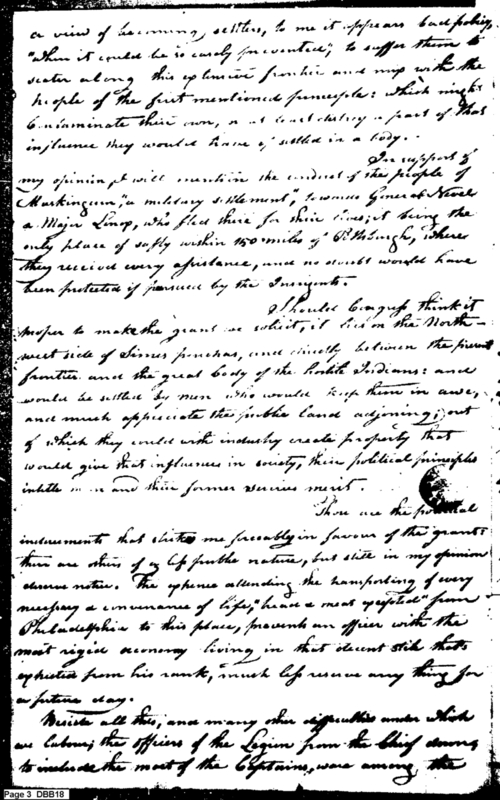 a view of becoming settlers, to me it appears bad policy,
"when it could be so easily prevented", to suffer them to
scater along this extensive frontier and mix with the
people of the first mentioned principle: which might
contaminate their own, or at least destroy a part of that
influence they would have if settled in a body.
In support of
my opinion, I will mention the conduct of the people of
Muskingum, "a military settlement", towards General Nevel
a Major Linop, who fled there for their lives, it being the
only place of safty within 150 miles of Pittsburgh, where
they received every assistance, and no doubt would have
been protected if persued by the Insirgents.
Should Congress think it
proper to make the grant we solicit, it lies on the North-
west side of Simes purchas, and directly between the present
frontier and the great body of the hostile Indians: and
would be settled by men who would keep them in awe,
and much appreciate the public land adjoining; out
of which they could with industry create property that
would give that influence in society, their political principles
intitle them and their former services merit.
These are the political
inducements that strikes me forceably in favour of the grant:
there are others of a less public nature, but still in my opinion
deserve notice. The expence attending the transporting of every
necessary & convenance of life, "bread & meat excepted" from
Philadelphia to this place, prevents an officer with the
most rigid economy living in that decent stile thats
expected from his rank, much less reserve any thing for
a future day.
Beside all this, and many other difficulties under which
we labour; the officers of the Legion from the Chief down,
to include the most of the Captains, ware among the
Page 3 DBB18